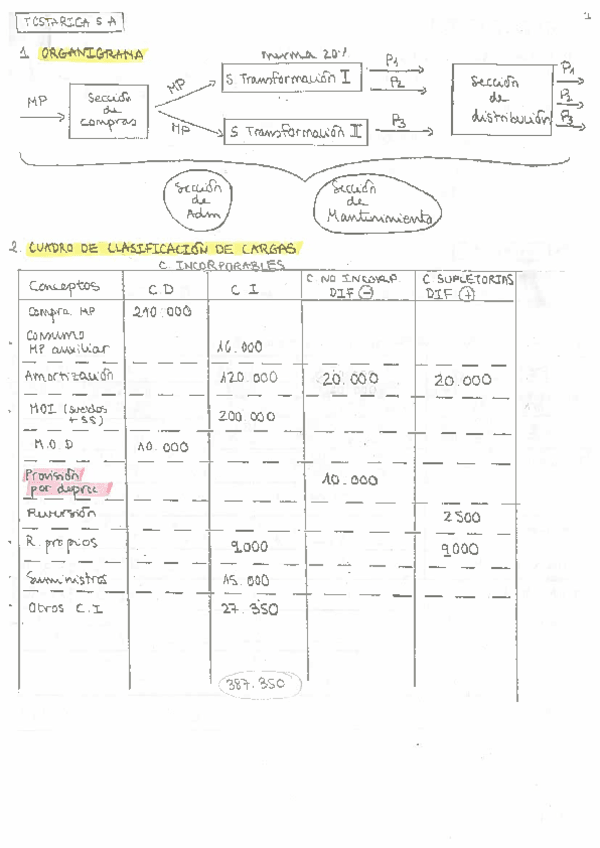 TOSTARICA S A
1
1 ORGANIGRAMA
merma 20%
MP
Sección de compras
MP
MP
S Transformación I
P1
P2
S Transformación II
P3
Sección de distribución
P1
P2
P3
Sección de Adm
Sección de Mantenimiento
2. CUADRO DE CLASIFICACIÓN DE CARGAS
C. INCORPORABLES
Conceptos C D C I C NO INCORP. DIF - C SUPLETORIAS DIF +
Compra MP 210.000
Consumo MP auxiliar 16.000
Amortización 120.000 20.000 20.000
MOI (sueldos + SS) 200.000
M.O.D 10.000
Provisión por deprec 10.000
Reversión 2500
R. propios 9000 9000
Suministros 15.000
Otros C.I 27.350
387.350